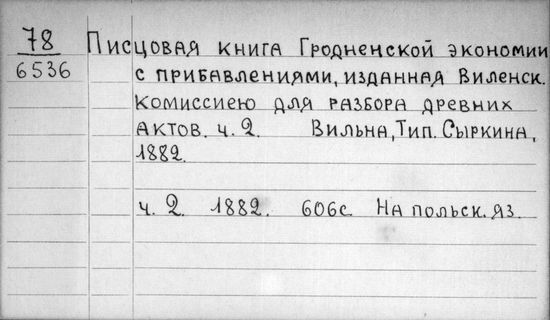 78 Писцовая книга Гродненской экономии
6536 с прибавлениями, изданная Виленск.
комиссиею для разбора древних
актов. ч. 2. Вильна, Тип. Сыркина,
1882.
ч. 2. 1882. 606с. На польск. яз.